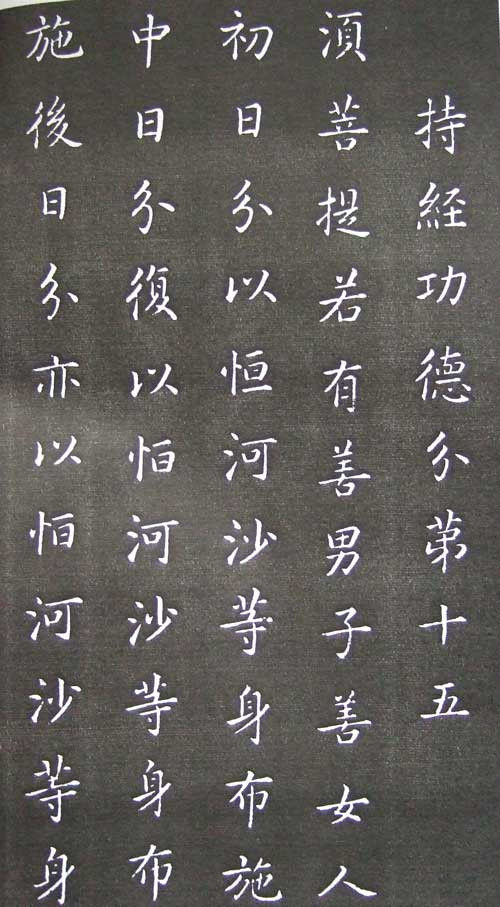 持經功德分第十五
須菩提若有善男子善女人
初日分以恒河沙等身布施
中日分復以恒河沙等身布
施後日分亦以恒河沙等身